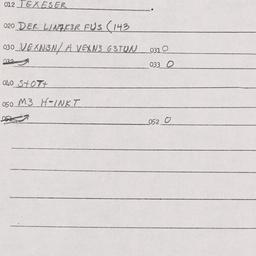 012 TEXESER .
020 DER LINZKER FUS (143
030 VEXNSN/A VEXNS GSTUN 031 0
033 0
040 STOT+
050 M3 H-INKT
052 0